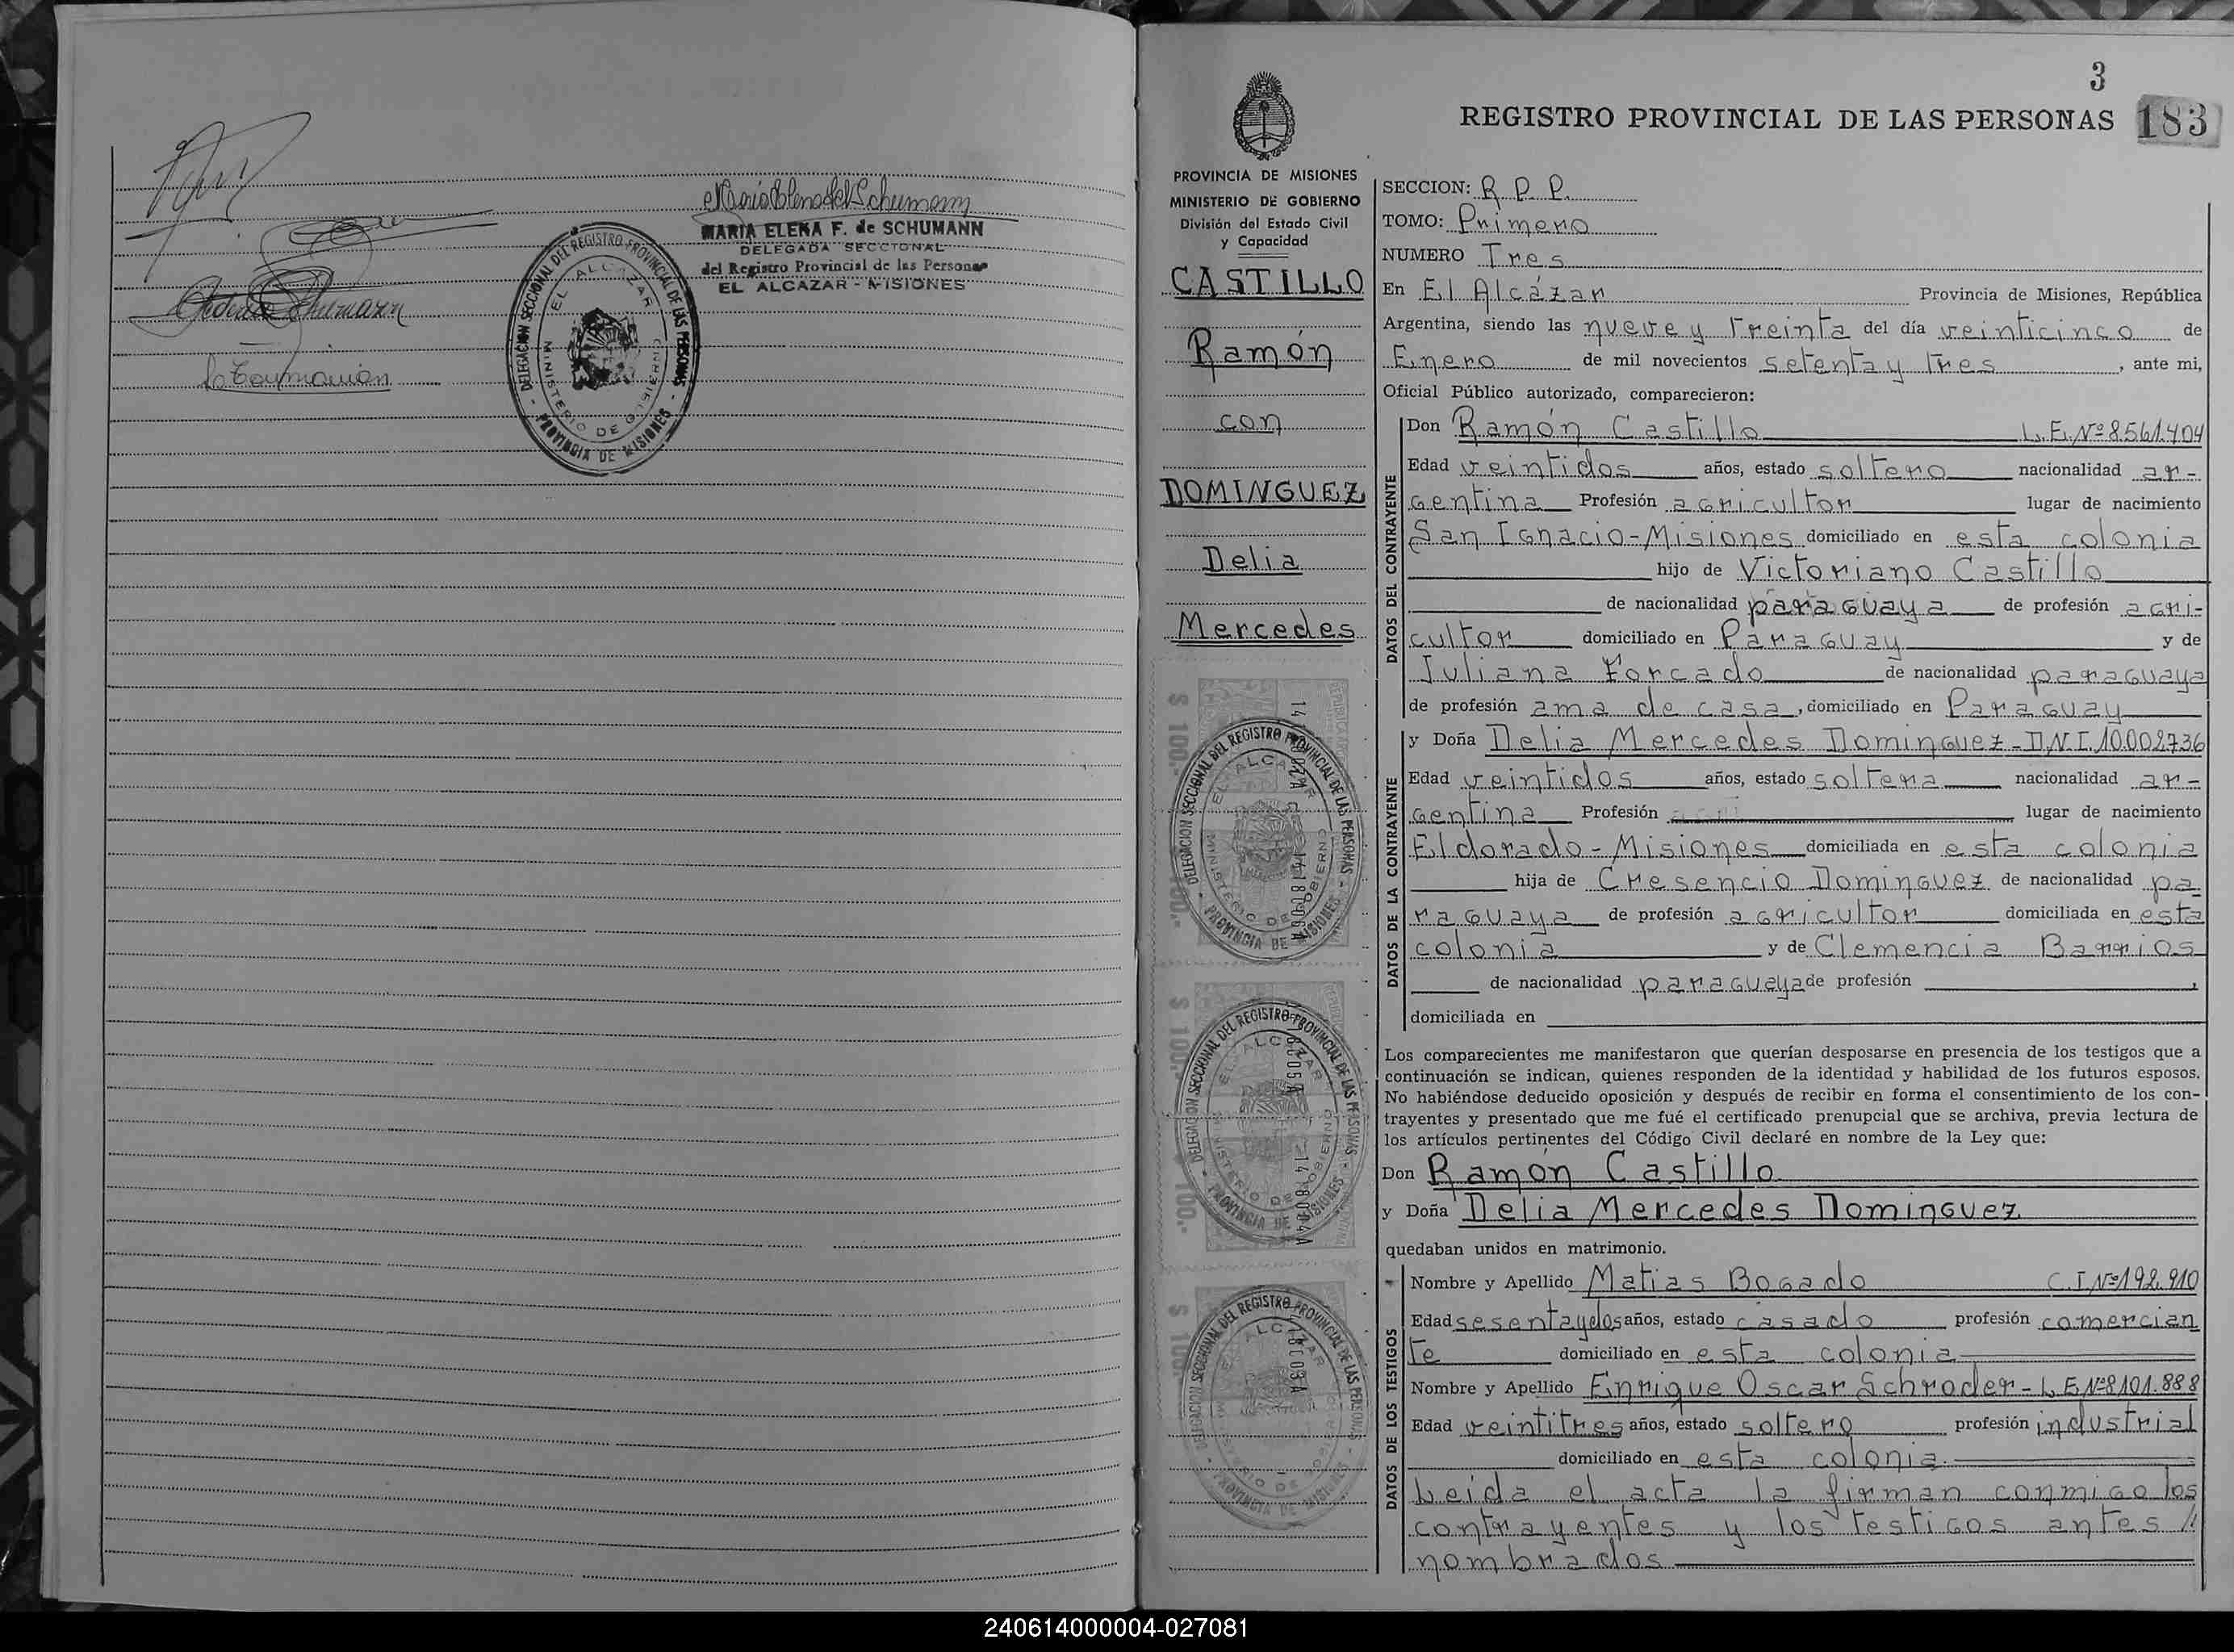 Maria Elena F. de Schumann
MARIA ELENA F. de SCHUMANN
DELEGADA SECCIONAL
del Registro Provincial de las Personas
EL ALCAZAR - MISIONES
DELEGACION SECCIONAL DEL REGISTRO PROVINCIAL DE LAS PERSONAS - PROVINCIA DE MISIONES -
EL ALCAZAR
MINISTERIO DE GOBIERNO
Schumann
3
REGISTRO PROVINCIAL DE LAS PERSONAS 183
PROVINCIA DE MISIONES
MINISTERIO DE GOBIERNO
División del Estado Civil
y Capacidad
CASTILLO
Ramón
con
DOMINGUEZ
Delia
Mercedes
$ 100.-
DELEGACION SECCIONAL DEL REGISTRO PROVINCIAL DE LAS PERSONAS - PROVINCIA DE MISIONES -
EL ALCAZAR
MINISTERIO DE GOBIERNO
$ 100.-
DELEGACION SECCIONAL DEL REGISTRO PROVINCIAL DE LAS PERSONAS - PROVINCIA DE MISIONES -
EL ALCAZAR
MINISTERIO DE GOBIERNO
$ 100.-
DELEGACION SECCIONAL DEL REGISTRO PROVINCIAL DE LAS PERSONAS - PROVINCIA DE MISIONES -
EL ALCAZAR
MINISTERIO DE GOBIERNO
SECCION: R.P.P.
TOMO: Primero
NUMERO Tres
En El Alcázar Provincia de Misiones, República
Argentina, siendo las nueve y treinta del día veinticinco de
Enero de mil novecientos setenta y tres, ante mi,
Oficial Público autorizado, comparecieron:
DATOS DEL CONTRAYENTE
Don Ramón Castillo L.E.Nº8.561.404
Edad veintidos años, estado soltero nacionalidad ar-
gentina Profesión agricultor lugar de nacimiento
San Ignacio-Misiones domiciliado en esta colonia
hijo de Victoriano Castillo
de nacionalidad paraguaya de profesión agri-
cultor domiciliado en Paraguay y de
Juliana Forcado de nacionalidad paraguaya
de profesión ama de casa, domiciliado en Paraguay
DATOS DE LA CONTRAYENTE
y Doña Delia Mercedes Dominguez-D.N.I.10.002.736
Edad veintidos años, estado soltera nacionalidad ar-
gentina Profesión lugar de nacimiento
Eldorado-Misiones domiciliada en esta colonia
hija de Cresencio Dominguez de nacionalidad pa-
raguaya de profesión agricultor domiciliada en esta
colonia y de Clemencia Barrios
de nacionalidad paraguaya de profesión ,
domiciliada en
Los comparecientes me manifestaron que querían desposarse en presencia de los testigos que a
continuación se indican, quienes responden de la identidad y habilidad de los futuros esposos.
No habiéndose deducido oposición y después de recibir en forma el consentimiento de los con-
trayentes y presentado que me fué el certificado prenupcial que se archiva, previa lectura de
los artículos pertinentes del Código Civil declaré en nombre de la Ley que:
Don Ramón Castillo
y Doña Delia Mercedes Dominguez
quedaban unidos en matrimonio.
DATOS DE LOS TESTIGOS
Nombre y Apellido Matias Bogado C.I.Nº192.910
Edad sesentaydos años, estado casado profesión comercian
te domiciliado en esta colonia
Nombre y Apellido Enrique Oscar Schroder-L.E.Nº8.101.888
Edad veintitres años, estado soltero profesión industrial
domiciliado en esta colonia.
Leida el acta la firman conmigo los
contrayentes y los testigos antes //
nombrados
240614000004-027081